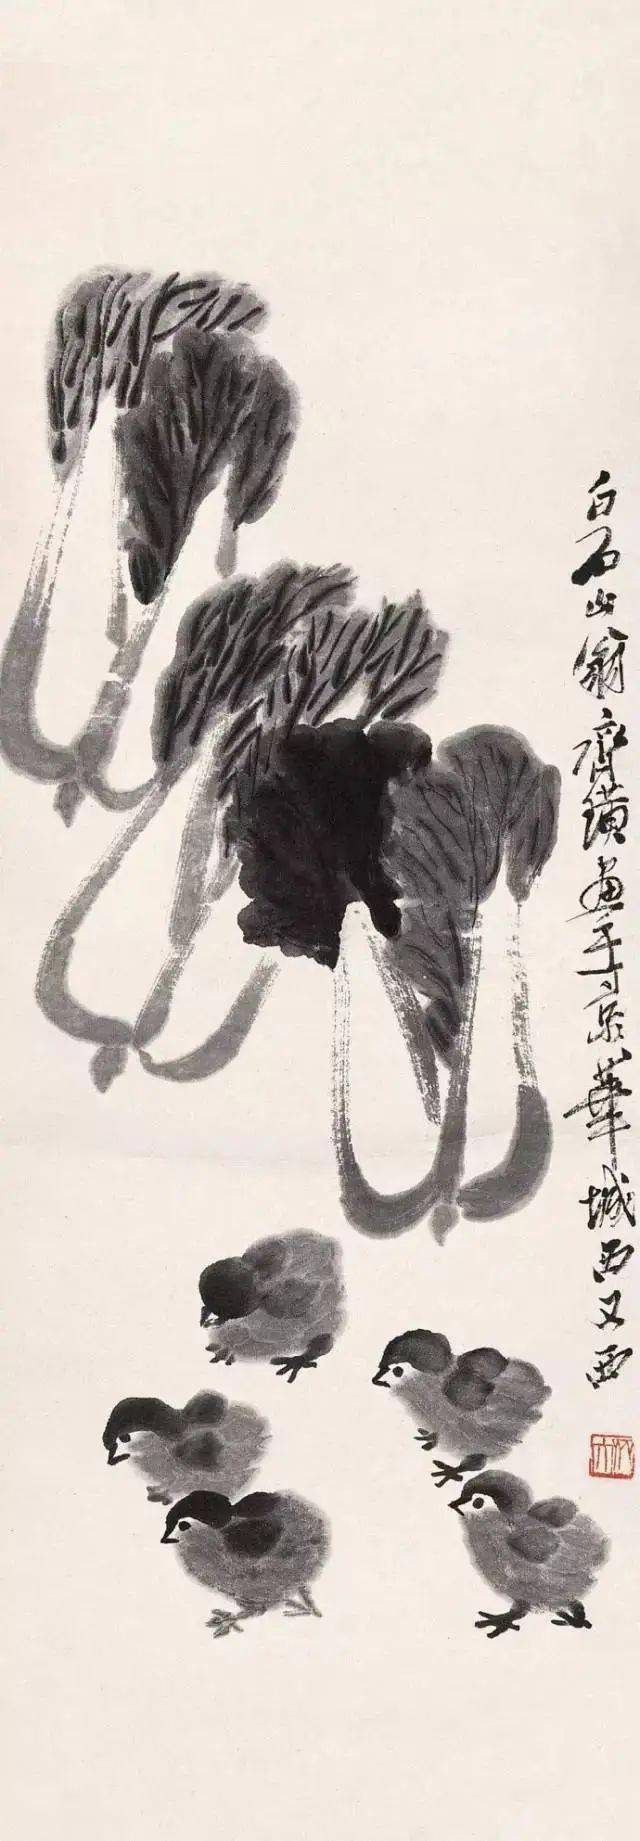 白石山翁齊璜畫于京華城西又西
木人